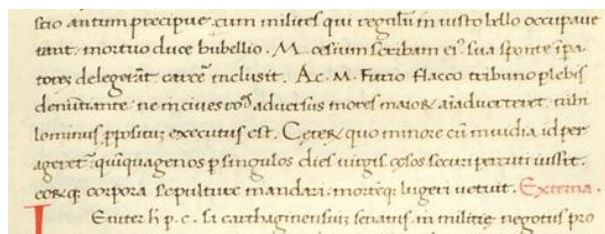 scio antum precipue. cum milites qui regulum iniusto bello occupaue
rant. mortuo duce bubellio. M. cesium scribam ei⁹. sua sponte īpa
tores delegerāt carcē inclusit. Ac. M. Furio flacco tribuno plebis
denūtiante. ne in ciues ro͞s aduersus mores maioꝝ aīaduerteret. nihi
lominus ꝓpositū executus est. Ceteꝝ quo minore cū inuidia id per
ageret. quīquagenos ꝑ singulos dies uirgis cęsos securi percuti iussit.
eoꝝqꝫ corpora sepulture mandari. mortēqꝫ lugeri uetuit. Externa.
Leniter h p. c. si carthaginensiuꝫ senatus. in militię negotiis pro